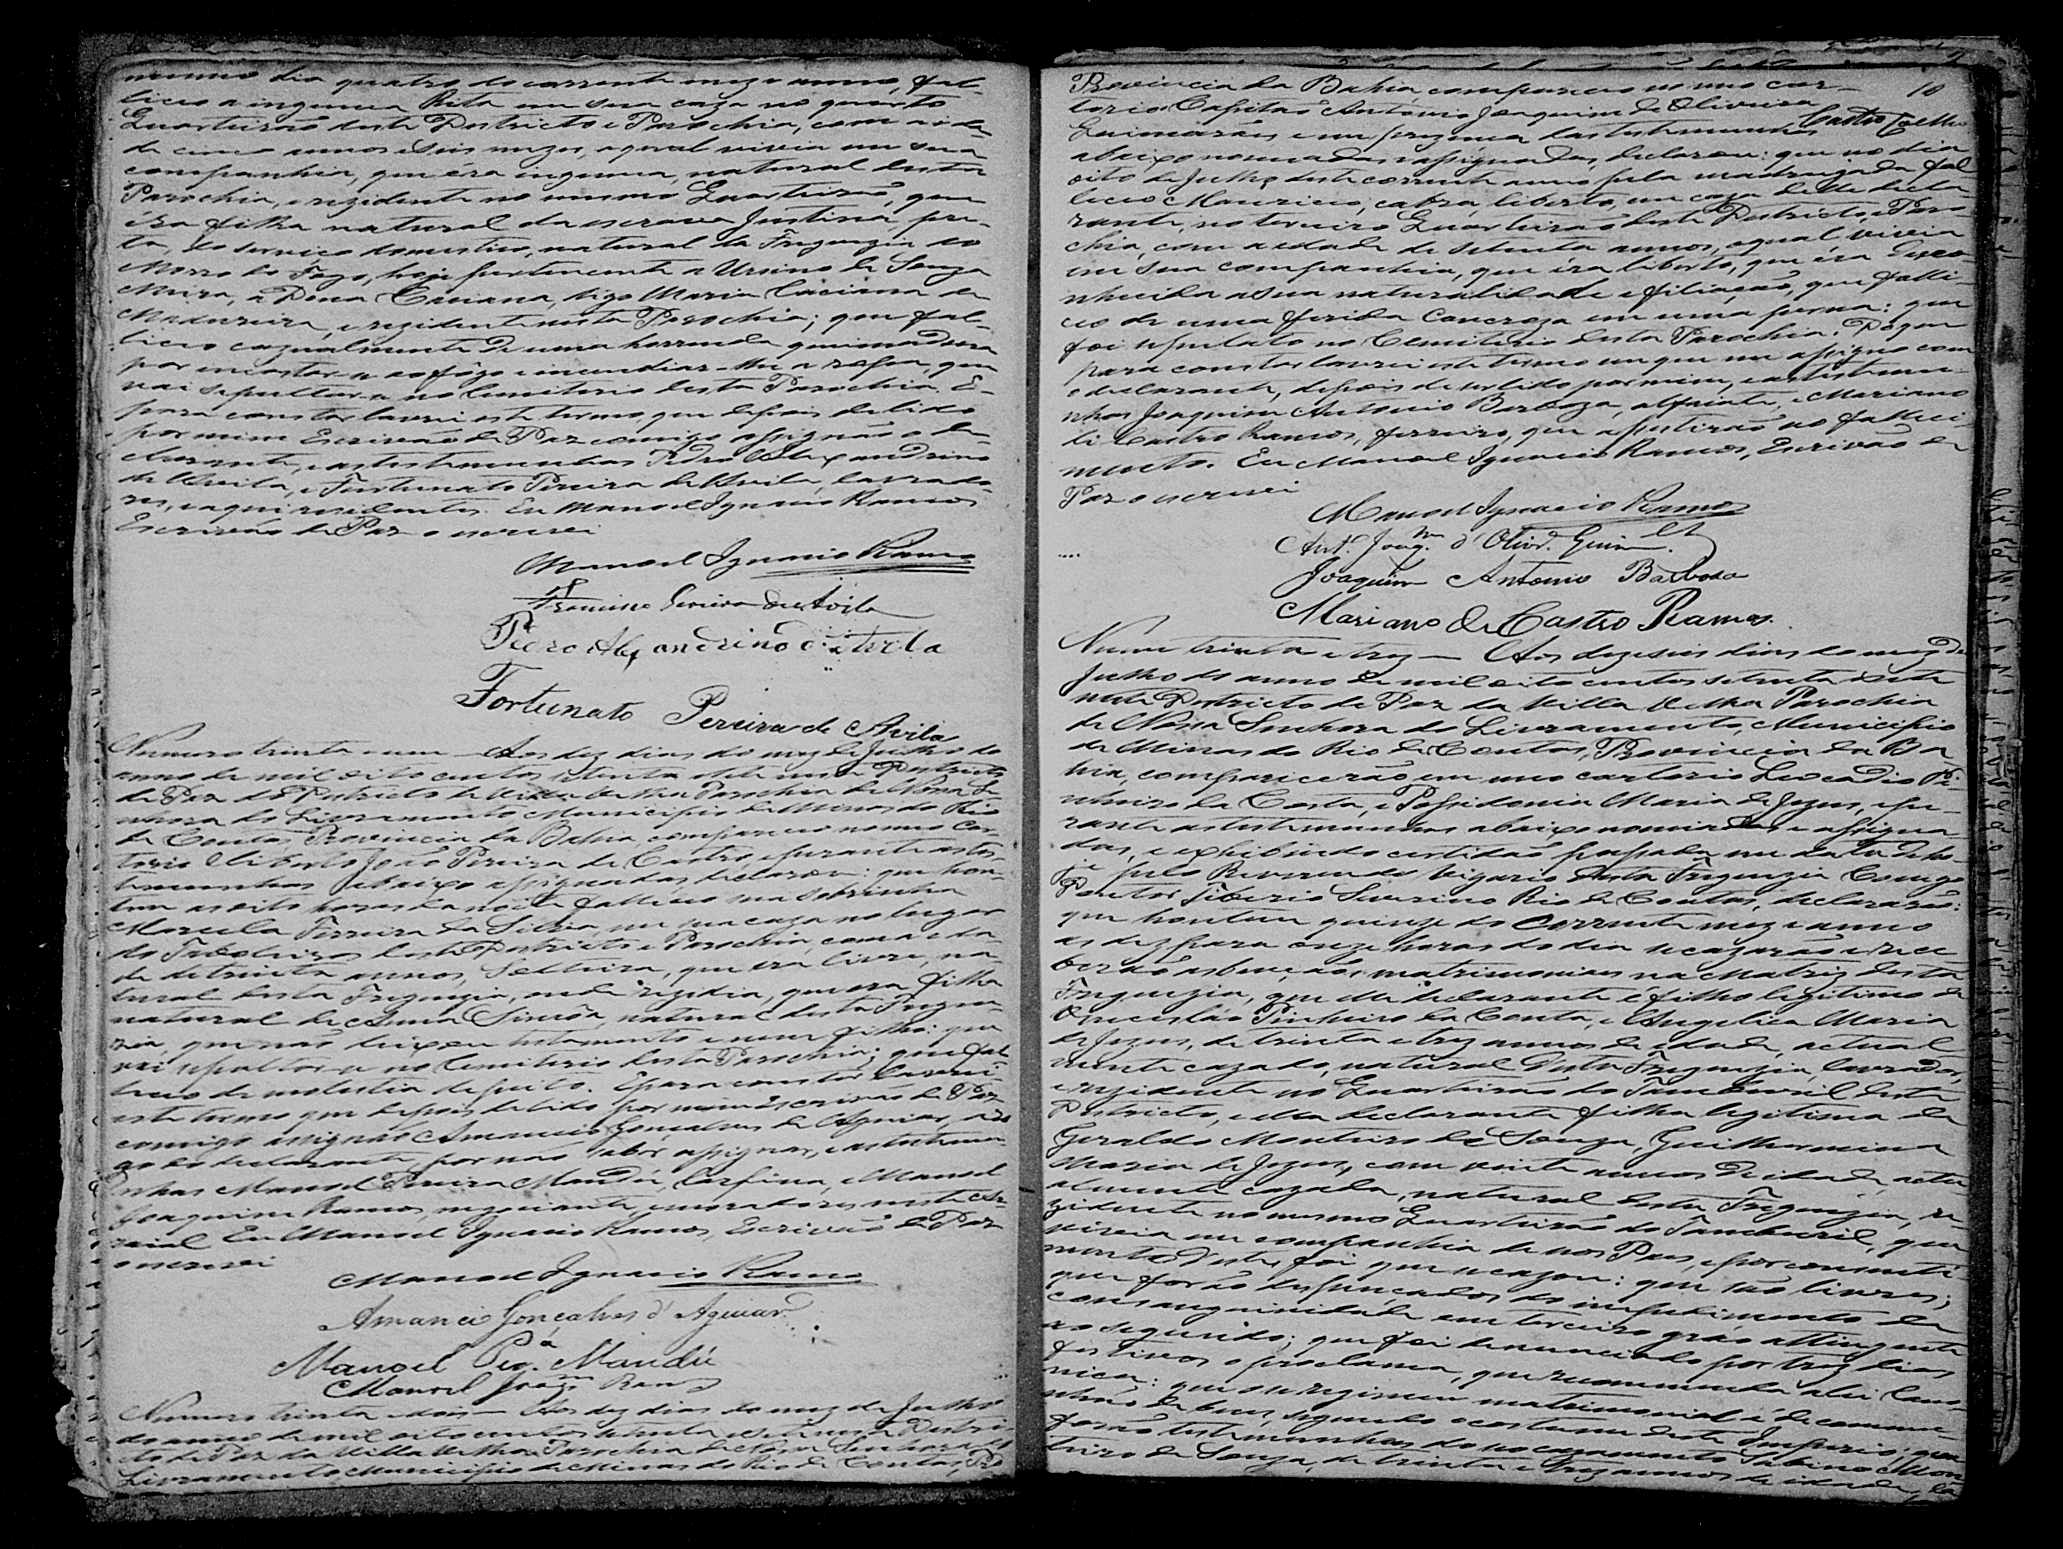 mesmo dia quatro do corrente mez e anno, fal-
leceo a ingenua Rita em sua caza no quarto
Quarteirão deste Districto e Parochia, com a ida-
de de cinco annos e seis mezes, a qual vivia em sua
companhia, que éra ingenua, natural desta
Parochia, e rezidente no mesmo Quarteirão, que
éra filha natural da escrava Justina, pre-
ta, do serviço domestico, natural da Freguezia do
Morro do Fogo, hoje pertencente a Ursino de Souza
Meira, a Dona Caciana, digo Maria Caciana de
Madureira, e rezidente nesta Parochia; que fal-
leceo cazualmente de uma horrenda queimadura
por encostar-se ao fôgo e incendiar-lhe a roupa, que
vai sepultar-se no Cemiterio desta Parochia. E
para constar lavrei este termo, que depois de lido
por mim Escrivão de Paz comigo assignão o de-
clarante, e as testemunhas Pedro Alexandrino
de Avila, e Fortunato Pereira de Avila, lavrado-
res, e aqui rezidentes. Eu Manoel Ignacio Ramos
Escrivão de Paz o escrevi
Manoel Ignacio Ramos
Francisco Pereira de Avila
Pedro Alexandrino d'Avila
Fortunato Pereira de Avila
Numero trinta e um — Aos dez dias do mez de Julho do
anno de mil oito centos setenta e sete nesse Districto
de Paz do Districto da Villa Velha Parochia de Nossa Se-
nhora do Livramento Municipio de Minas do Rio
de Contas, Provincia da Bahia, compareceo no meo Car-
torio o liberto João Pereira de Castro, e perante as tes-
temunhas abaixo assignadas declarou: que hon-
tem as oito horas da noite falleceo sua sobrinha
Marcela Ferreira da Silva, em sua caza no lugar
do Taboleiro deste Districto e Parochia, com a ida-
de de trinta annos, Solteira, que era livre, na-
tural desta Freguezia, onde rezidia, que era filha
natural de Anna, natural desta Fregue-
zia, que não deixou testamento e nem filho: que
vai sepultar-se no Cemiterio desta Parochia; que fal-
leceo de molestia de peito. E para constar lavrei
este termo que depois de lido por mim Escrivão de Paz
comigo assignão Amancio Gonçalves de Aguiar, a ro-
go do declarante por não saber assignar, e as testemu-
nhas Manoel Pereira Mandú, Carpina, e Manoel
Joaquim Ramos, negociante, e moradores neste Ar-
raial Eu Manoel Ignacio Ramos, Escrivão de Paz
o escrevi
Manoel Ignacio Ramos
Amancio Gonçalves d'Aguiar
Manoel Per.ª Mandú
Manoel Joaqm Ramos
Numero trinta e dois — Aos dez dias do mez de Julho
do anno de mil oito centos setenta e sete neste Distri-
cto de Paz da Villa Velha Parochia de Nossa Senhora do
Livramento Municipio de Minas do Rio de Contas, 
10
Castro Coelho
Provincia da Bahia, compareceo no meo car-
torio o Capitão Antonio Joaquim de Oliveira
Guimarães e em prezença das testemunhas
abaixo nomeadas e assignadas, declarou: que no dia
oito de Julho deste corrente anno pela madrugada fal-
leceo Mauricio, cabra, liberto, em caza delle decla-
rante, no terceiro Quarteirão deste Districto e Paro-
chia, com a edade de setenta annos, o qual vivia
em sua companhia, que éra liberto, que éra desco-
nhecida a sua naturalidade e filiação, que falle-
ceo de uma ferida Cancroza em uma perna: que
foi sepultado no Cemiterio desta Parochia. Do que
para constar lavrei este termo em que me assigno com
o declarante, depois de ser lido por mim, e as testemu-
nhas Joaquim Antonio Barboza, alfaiate, e Mariano
de Castro Ramos, ferreiro, que assistirão ao falleci-
mento. Eu Manoel Ignacio Ramos, Escrivão de
Paz o escrevi
Manoel Ignacio Ramos
Ant.º Joaqm d'Olivrª Guim.es
Joaquim Antonio Barboza
Mariano de Castro Ramos.
Numero trinta e trez — Aos dezeseis dias do mez de
Julho do anno de mil oito centos setenta e sete
neste Districto de Paz da Villa Velha Parochia
de Nossa Senhora do Livramento, Municipio
de Minas do Rio de Contas, Provincia da Ba-
hia, comparecerão em meo cartorio Leocadio Pi-
nheiro da Costa, e Possidonia Maria de Jezus, e pe-
rante as testemunhas abaixo nomeadas e assigna-
das, e exhibindo certidão passada em data de ho-
je pelo Reverendo Vigario desta Freguezia Conego
Doutor Tiberio Severino Rio de Contas, declararão:
que hontem quinze do corrente mez e anno
as dez para onze horas do dia se cazarão e rece-
berão as bençãos matrimoniaes na Matriz desta
Freguezia, que elle declarante é filho legitimo de
Pinheiro da Costa, e Angelica Maria
de Jezus, de trinta e trez annos de edade, actual-
mente cazado, natural desta Freguezia, lavrador,
e rezidente no Quarteirão do Tamboril deste
Districto, e ella declarante filha legitima de
Geraldo Monteiro de Souza, Guilhermina
Maria de Jezus, com vinte annos de idade, actu-
almente cazada, natural desta Freguezia, re-
zidente no mesmo Quarteirão do Tamboril, que
vivia em companhia de seos Paes, e por consenti-
mento destes foi que se cazou: que são livres;
que forão dispensados do impedimento de
consanguinidade em terceiro grao attingente
ao segundo; que foi denunciado por trez dias
festivos o proclama, que recommenda a lei Cano-
nica: que o regimen matrimonial é de commu-
nhão de bens, segundo o costume deste Imperio; que
forão testemunhas do seo cazamento Sabino Mon-
teiro de Souza, de trinta e trez annos de idade, la-